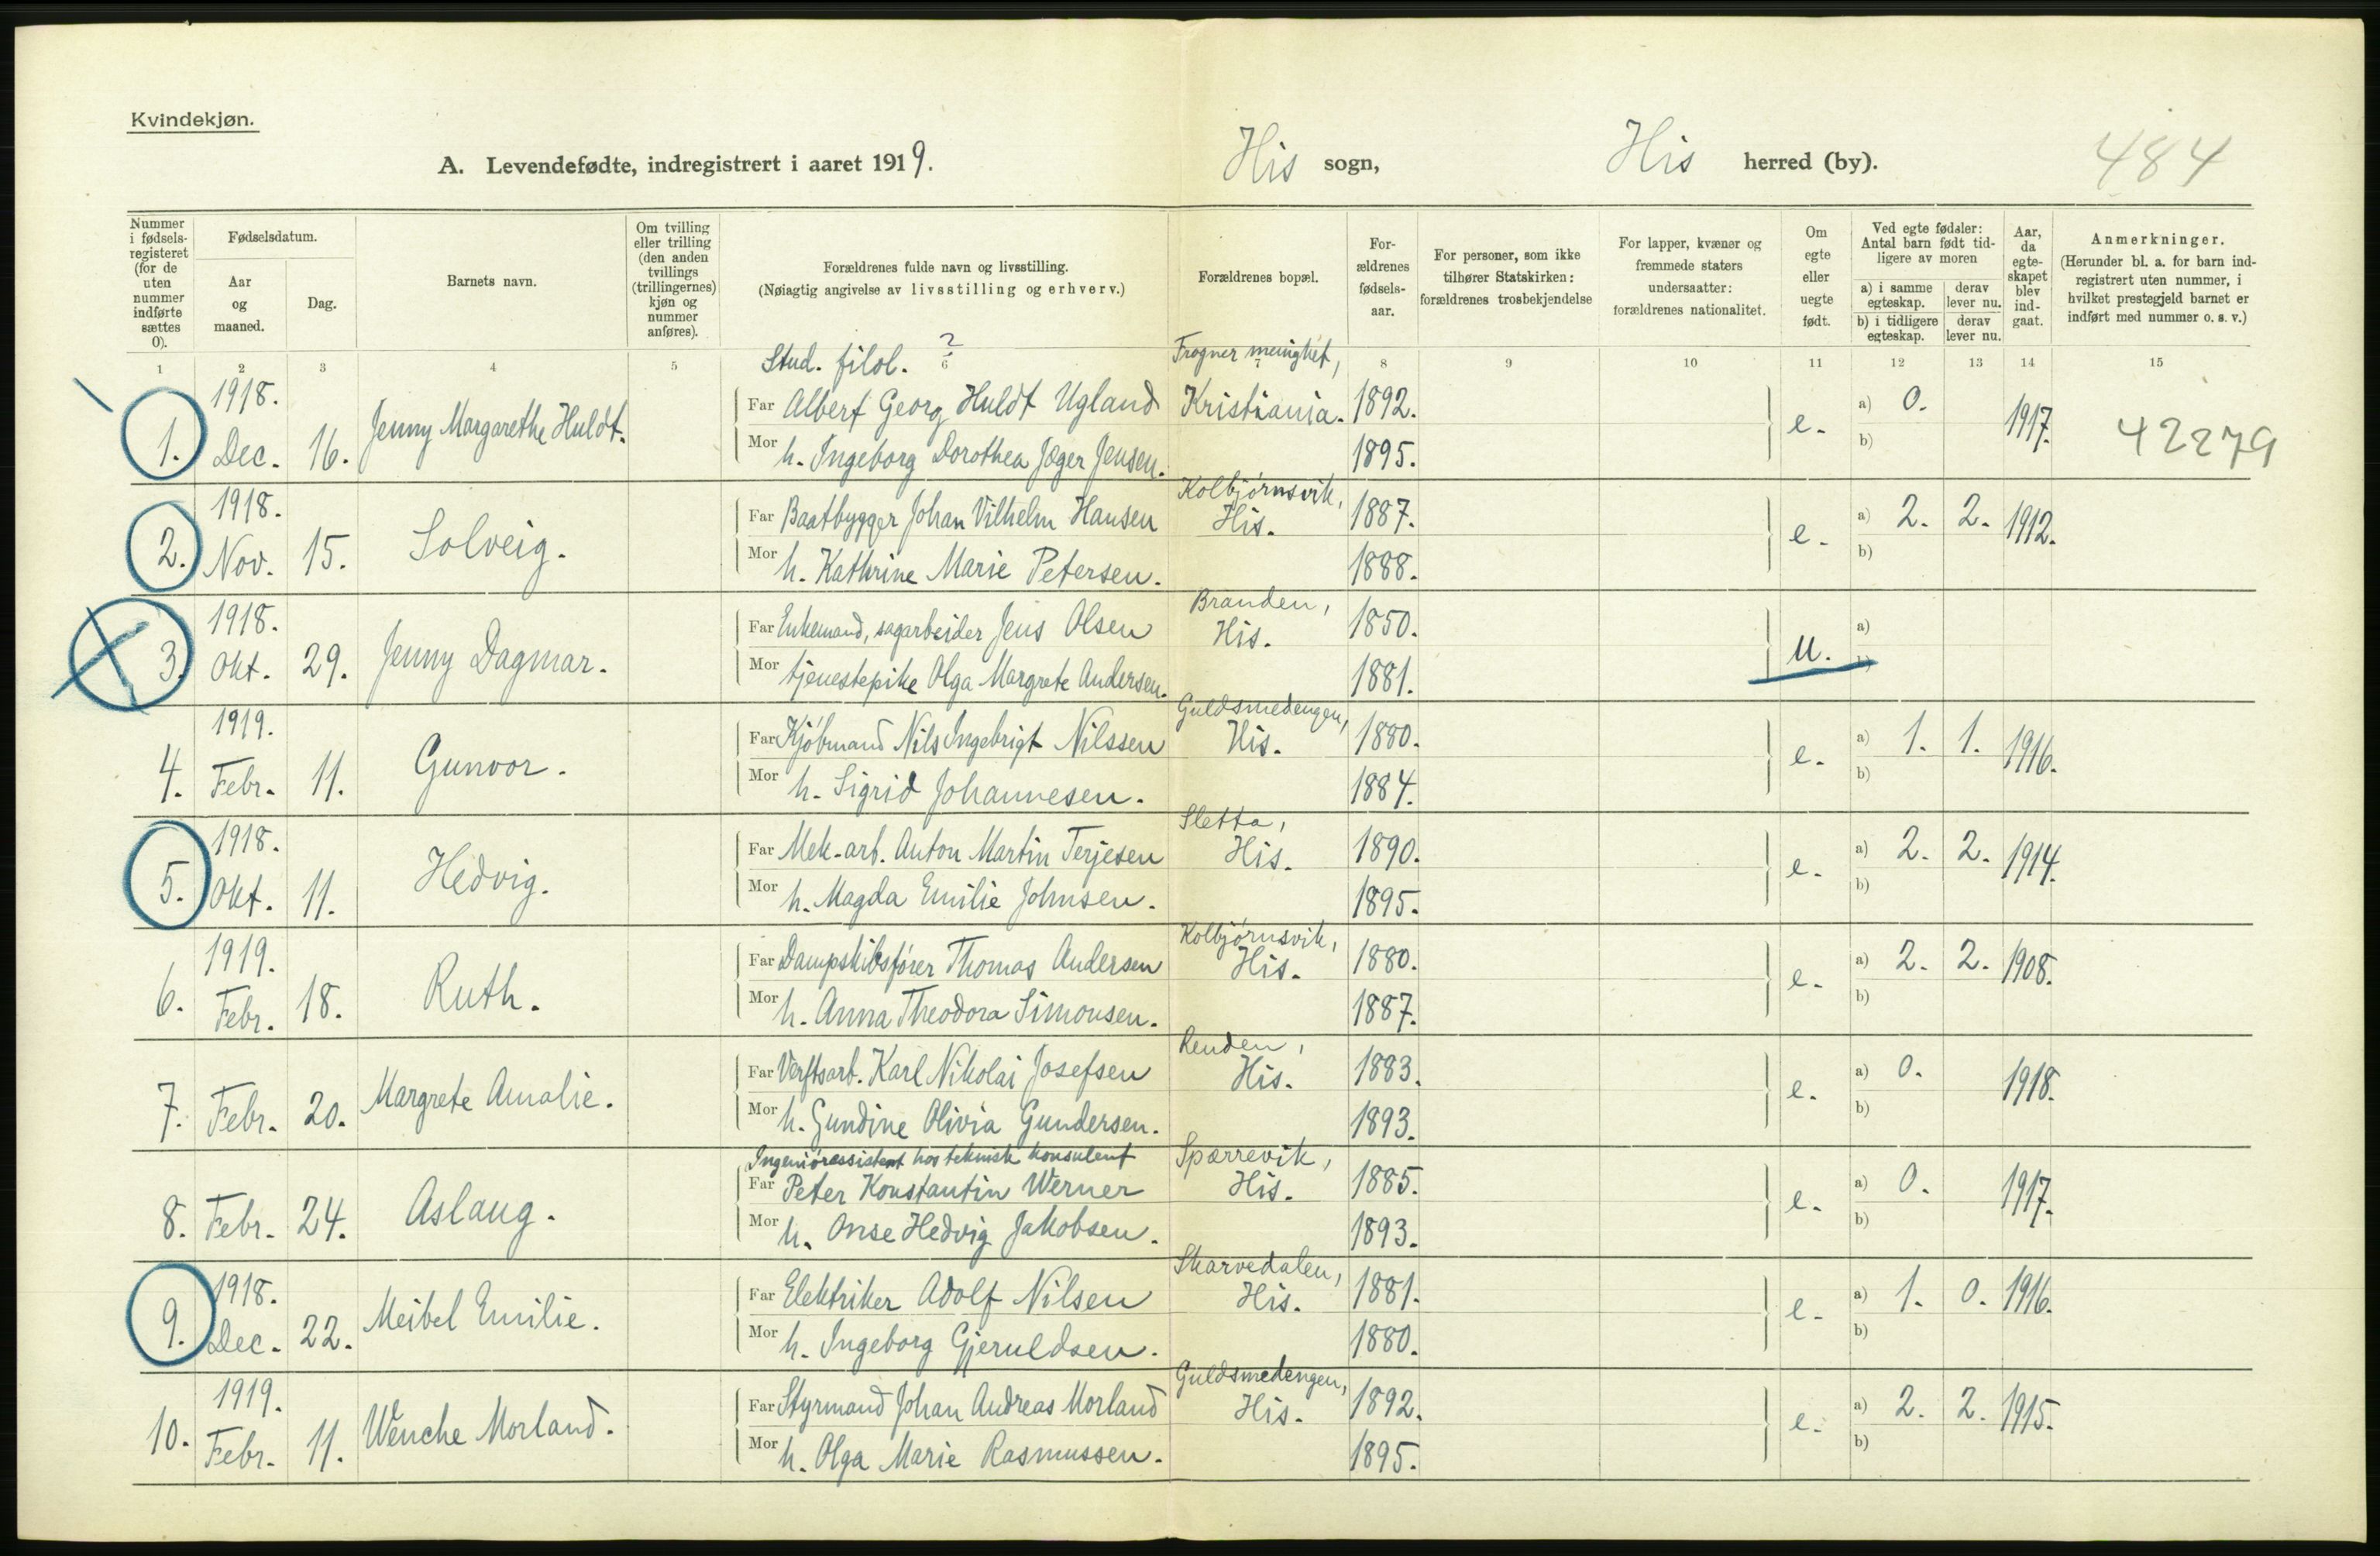 Kvindekjøn.
A. Levendefødte, indregistrert i aaret 1919. His sogn, His herred (by). 484
Nummer i fødsels-registeret (for de uten nummer indførte sættes 0).
Fødselsdatum.
Aar og maaned.
Dag.
Barnets navn.
Om tvilling eller trilling (den anden tvillings (trillingernes) kjøn og nummer anføres).
Forældrenes fulde navn og livsstilling.
(Nøiagtig angivelse av livsstilling og erhverv.)
Forældrenes bopæl.
For-ældrenes fødsels-aar.
For personer, som ikke tilhører Statskirken: forældrenes trosbekjendelse
For lapper, kvæner og fremmede staters undersaatter: forældrenes nationalitet.
Om egte eller uegte født.
Ved egte fødsler: Antal barn født tid-ligere av moren
a) i samme egteskap.
derav lever nu.
b) i tidligere egteskap.
derav lever nu.
Aar, da egte-skapet blev ind-gaat.
Anmerkninger.
(Herunder bl. a. for barn ind-registrert uten nummer, i hvilket prestegjeld barnet er indført med nummer o. s. v.)
1 2 3 4 5 6 7 8 9 10 11 12 13 14 15
Stud. filol. ? Frogner menighet,
1918. Far Albert Georg Huldt Ugland Kristiania. 1892. a) 0.
1. Dec. 16. Jenny Margarethe Huldt. e. 1917. 42279
Mor h. Ingeborg Dorothea Jæger Jensen. 1895. b)
Kolbjørnsvik,
1918. Far Baatbygger Johan Vilhelm Hansen His. 1887. a) 2. 2.
2. Nov. 15. Solveig. e. 1912.
Mor h. Kathrine Marie Petersen. 1888. b)
Branden,
1918. Far Enkemand, sagarbeider Jens Olsen His. 1850. a)
3. Okt. 29. Jenny Dagmar. u.
Mor tjenestepike Olga Margrete Andersen. 1881. b)
Guldsmedengen,
1919. Far Kjöbmand Nils Ingebrigt Nilssen His. 1880. a) 1. 1.
4. Febr. 11. Gunvor. e. 1916.
Mor h. Sigrid Johannesen. 1884. b)
Sletta,
1918. Far Mek-arb. Anton Martin Terjesen His. 1890. a) 2. 2.
5. Okt. 11. Hedvig. e. 1914.
Mor h. Magda Emilie Johnsen. 1895. b)
Kolbjørnsvik,
1919. Far Dampskibsfører Thomas Andersen His. 1880. a) 2. 2.
6. Febr. 18. Ruth. e. 1908.
Mor h. Anna Theodora Simonsen. 1887. b)
Renden,
Far Verftsarb. Karl Nikolai Josefsen His. 1883. a) 0.
7. Febr. 20. Margrete Amalie. e. 1918.
Mor h. Gundine Olivia Gundersen. 1893. b)
Ingeniörassistent hos teknisk konsulent Sparrevik,
Far Peter Konstantin Werner His. 1885. a) 0.
8. Febr. 24. Aslaug. e. 1917.
Mor h. Onse Hedvig Jakobsen. 1893. b)
Skarvedalen,
1918. Far Elektriker Adolf Nilsen His. 1881. a) 1. 0.
9. Dec. 22. Meibel Emilie. e. 1916.
Mor h. Ingeborg Gjeruldsen. 1880. b)
Guldsmedengen,
1919. Far Styrmand Johan Andreas Morland His. 1892. a) 2. 2.
10. Febr. 11. Wenche Morland. e. 1915.
Mor h. Olga Marie Rasmussen. 1895. b)